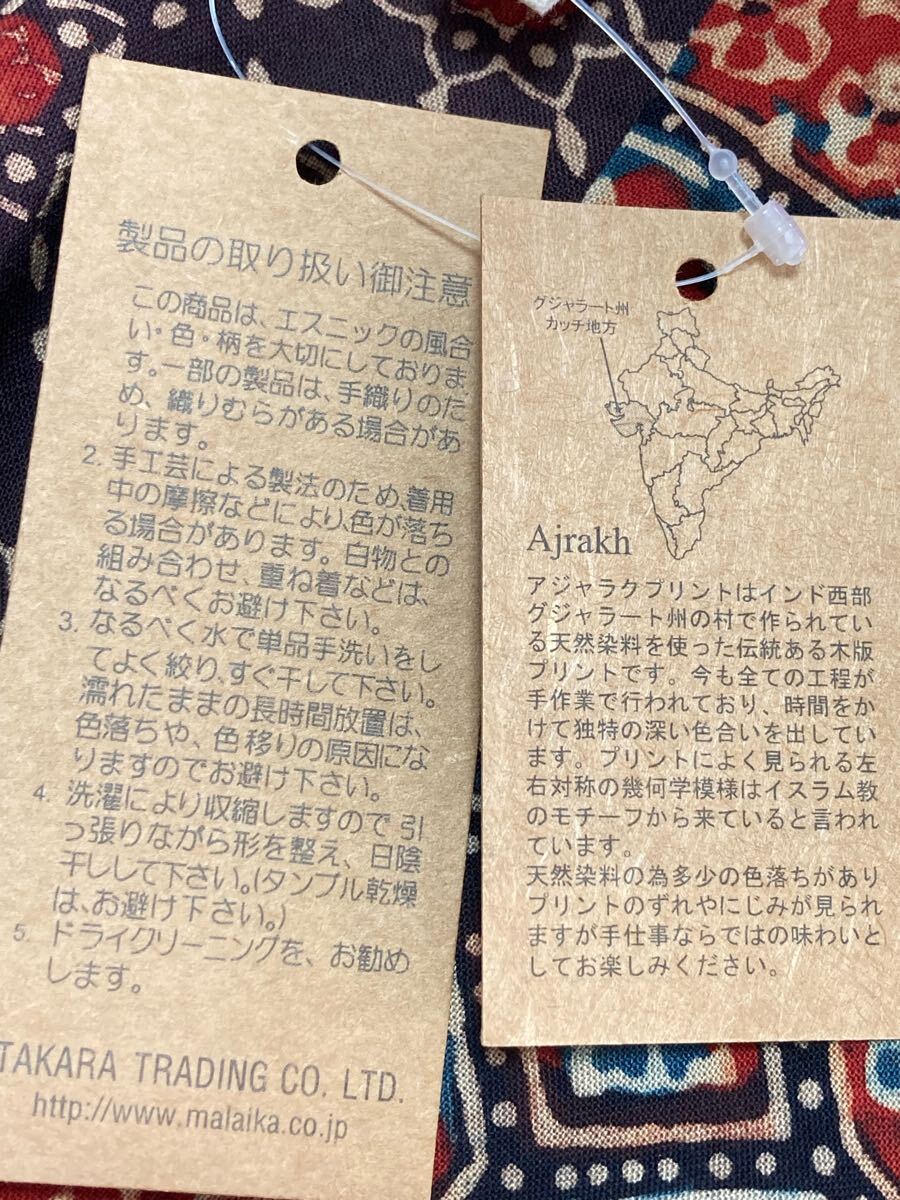 製品の取り扱い御注意
この商品は、エスニックの風合
い・色・柄を大切にしておりま
す。一部の製品は、手織りのた
め、織りむらがある場合があ
ります。
2. 手工芸による製法のため、着用
中の摩擦などにより、色が落ち
る場合があります。白物との
組み合わせ、重ね着などは、
なるべくお避け下さい。
3. なるべく水で単品手洗いをし
てよく絞り、すぐ干して下さい。
濡れたままの長時間放置は、
色落ちや、色移りの原因にな
りますのでお避け下さい。
4. 洗濯により収縮しますので 引
っ張りながら形を整え、日陰
干しして下さい。(タンブル乾燥
は、お避け下さい。)
5. ドライクリーニングを、お勧め
します。
TAKARA TRADING CO. LTD.
http://www.malaika.co.jp
グジャラート州
カッチ地方
Ajrakh
アジャラクプリントはインド西部
グジャラート州の村で作られてい
る天然染料を使った伝統ある木版
プリントです。今も全ての工程が
手作業で行われており、時間をか
けて独特の深い色合いを出してい
ます。プリントによく見られる左
右対称の幾何学模様はイスラム教
のモチーフから来ていると言われ
ています。
天然染料の為多少の色落ちがあり
プリントのずれやにじみが見られ
ますが手仕事ならではの味わいと
してお楽しみください。